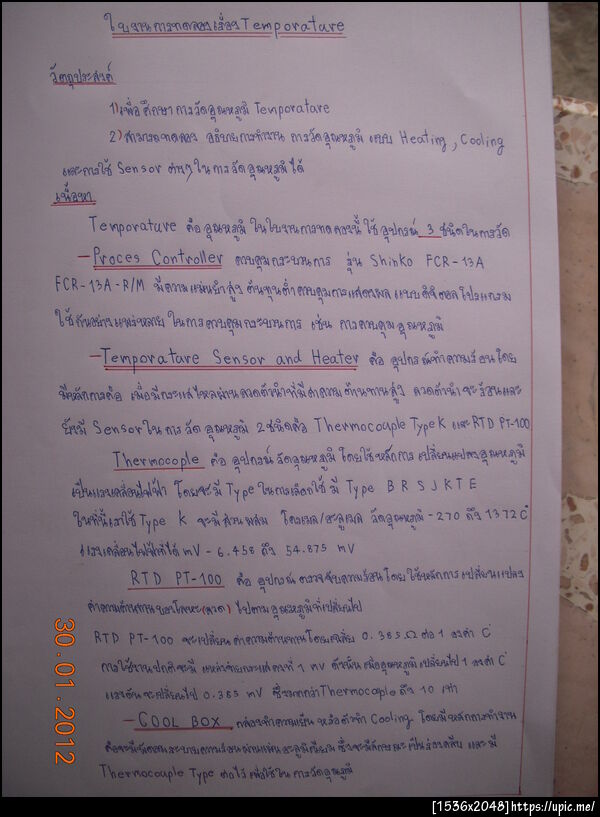 ใบงานการทดลองเรื่อง Temporature
วัตถุประสงค์
1) เพื่อศึกษาการวัดอุณหภูมิ Temporatare
2) สามารถทดลอง อธิบายการทำงาน การวัดอุณหภูมิ แบบ Heating , Cooling
และการใช้ Sensor ต่างๆ ในการวัดอุณหภูมิได้
เนื้อหา
Temporature คือ อุณหภูมิ ในใบงานการทดลองนี้ ใช้อุปกรณ์ 3 ชนิดในการวัด
- Proces Controller ควบคุมกระบวนการ รุ่น Shinko FCR-13A
FCR-13A-R/M มีความแม่นยำสูง ต้นทุนต่ำ ควบคุมการแสดงผล แบบดิจิตอล โปรแกรม
ใช้กันอย่างแพร่หลาย ในการควบคุมกระบวนการ เช่น การควบคุมอุณหภูมิ
- Temporatare Sensor and Heater คือ อุปกรณ์ทำความร้อนโดย
มีหลักการคือ เมื่อมีกระแสไหลผ่านลวดตัวนำที่มีค่าความต้านทานสูง ลวดตัวนำจะร้อนและ
ยังมี Sensor ในการวัดอุณหภูมิ 2 ชนิดคือ Thermocouple Type K และ RTD PT-100
Thermocople คือ อุปกรณ์วัดอุณหภูมิ โดยใช้หลักการ เปลี่ยนแปลงอุณหภูมิ
เป็นแรงเคลื่อนไฟฟ้า โดยจะมี Type ในการเลือกใช้ มี Type B R S J K T E
ในที่นี้เราใช้ Type K จะมีส่วนผสม โครเมล/อะลูเมล วัดอุณหภูมิ -270 ถึง 1372 C°
แรงเคลื่อนไฟฟ้าที่ได้ mV - 6.458 ถึง 54.875 mV
RTD PT-100 คือ อุปกรณ์ตรวจจับความร้อนโดยใช้หลักการเปลี่ยนแปลง
ค่าความต้านทานของโลหะ(ลวด) ไปตามอุณหภูมิที่เปลี่ยนไป
RTD PT-100 จะเปลี่ยนค่าความต้านทานโดยเฉลี่ย 0.385 Ω ต่อ 1 องศา C°
การใช้งานปกติจะมี แหล่งจ่ายกระแสคงที่ 1 mV ดังนั้นเมื่ออุณหภูมิเปลี่ยนไป 1 องศา C°
แรงดันจะเปลี่ยนไป 0.385 mV ซึ่งมากกว่า Thermocople ถึง 10 เท่า
- COOL BOX กล่องทำความเย็น หรือตัวทำ Cooling โดยมีหลักการทำงาน
คือจะมีพัดลมระบายความร้อนผ่านแผ่นอะลูมิเนียม ซึ่งจะมีลักษณะเป็นร่องคลีบ และมี
Thermocouple Type ต่อไว้เพื่อใช้ในการวัดอุณหภูมิ
30.01.2012
[1536x2048]https://upic.me/